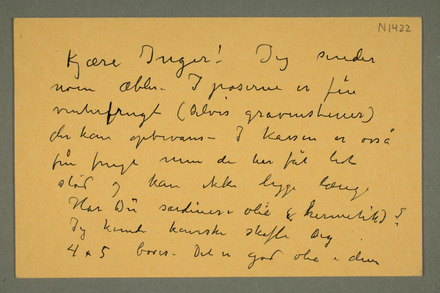 N1422
Kjære Inger! Jeg sender
noen æbler. I poserne er fin
vinterfrugt (delvis gravenstener)
du kan opbevare. I kassen er også
fin frugt men de har fåt litt
støt og kan ikke ligge længe
Har Du sardiner i olie (hermetikk)?
Jeg kunde kanske skaffe Dig
4 a 5 boxes. Det er god olie i dem